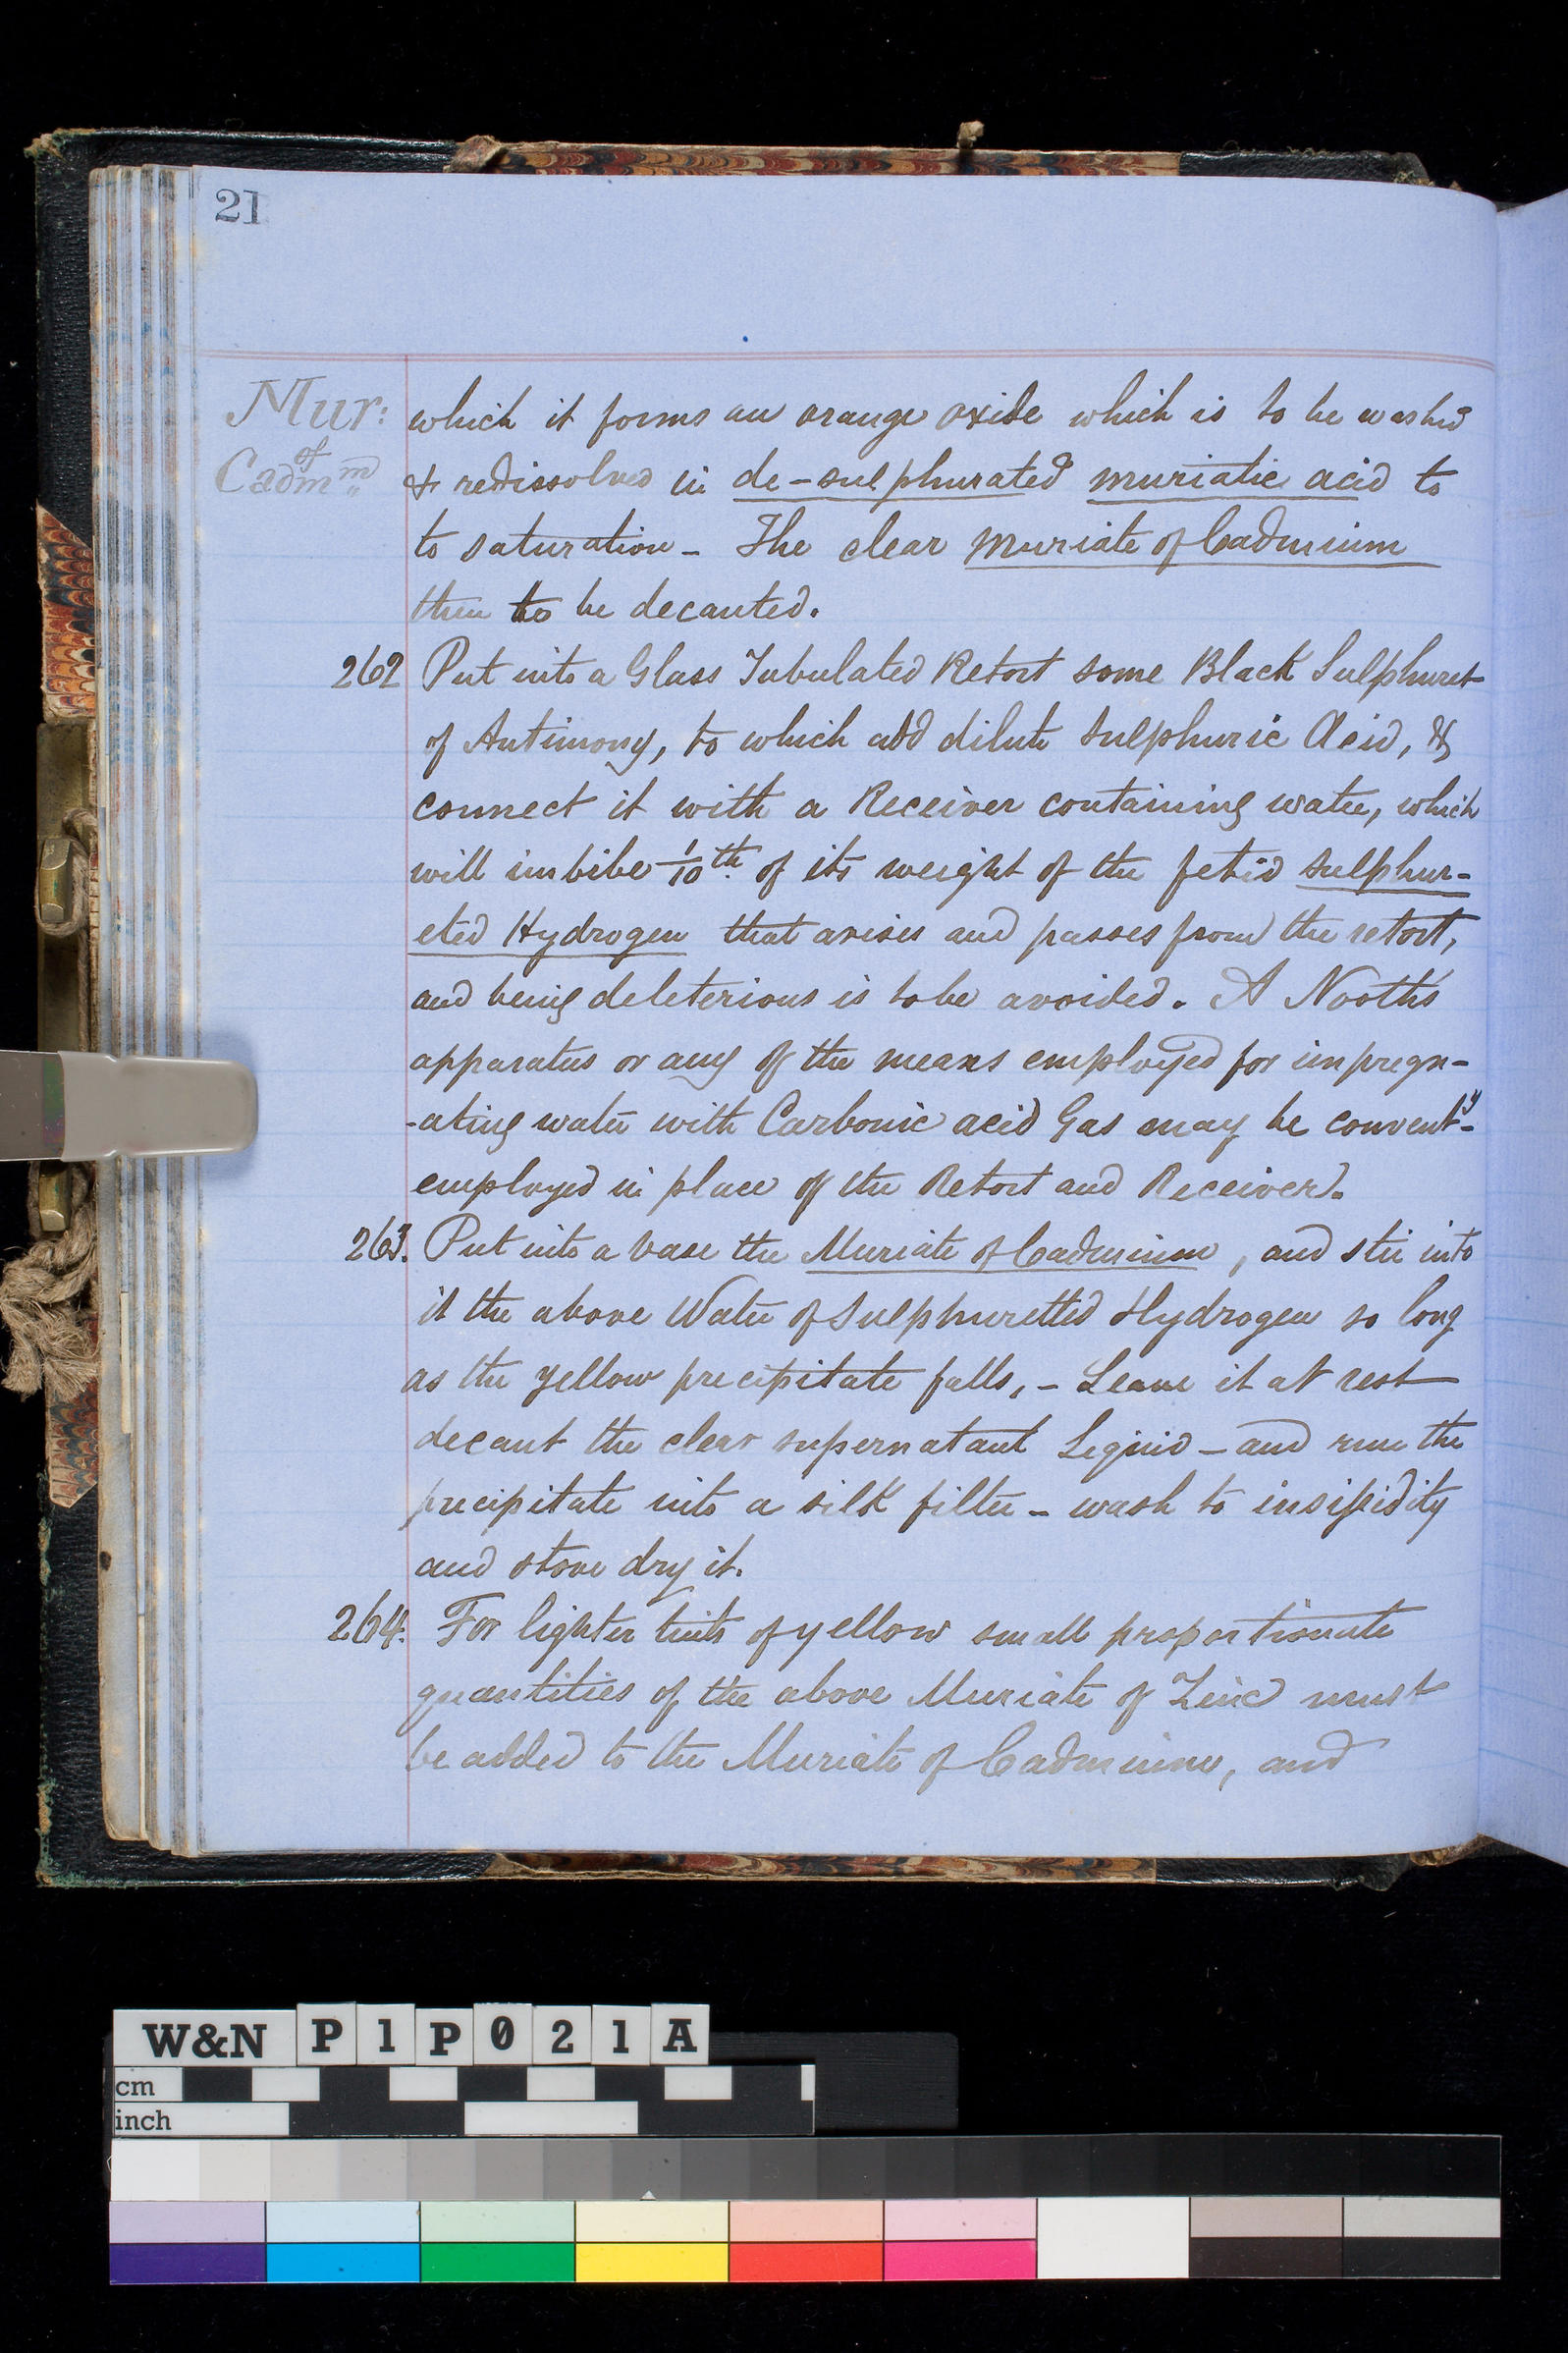 21
Mur:
of
Cadm.m
which it forms an orange oxide which is to be washed
& redissolved in de-sulphurated muriatic acid to
to saturation - The clear Muriate of Cadmium
then to be decanted.
262 Put into a Glass Tubulated Retort some Black Sulphuret
of Antimony, to which add dilute Sulphuric Acid, &
connect it with a Receiver containing water, which
will imbibe 1/10th of its weight of the fetid Sulphur-
eted Hydrogen that arises and passes from the retort,
and being deleterious is to be avoided. A Nooth's
apparatus or any of the means employed for impregn-
-ating water with Carbonic acid Gas may be convent.y
employed in place of the Retort and Receiver.
263. Put into a vase the Muriate of Cadmium, and stir into
it the above Water of Sulphuretted Hydrogen so long
as the yellow precipitate falls, - Leave it at rest
decant the clear supernatant Liquid - and run the
precipitate into a silk filter - wash to insipidity
and stove dry it.
264. For lighter tints of yellow small proportionate
quantities of the above Muriate of Zinc must
be added to the Muriate of Cadmium, and
W&N P1P021A
cm
inch